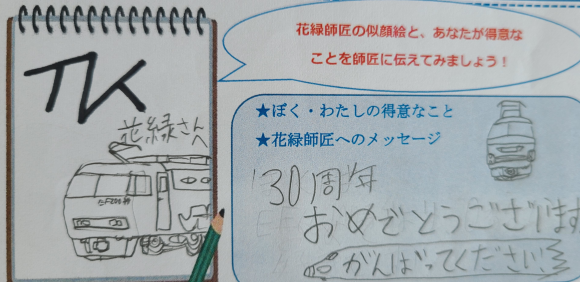 TK
花緑さんへ
EF200
花緑師匠の似顔絵と、あなたが得意な
ことを師匠に伝えてみましょう!
★ぼく・わたしの得意なこと
★花緑師匠へのメッセージ
30周年
おめでとうございます
がんばってください!